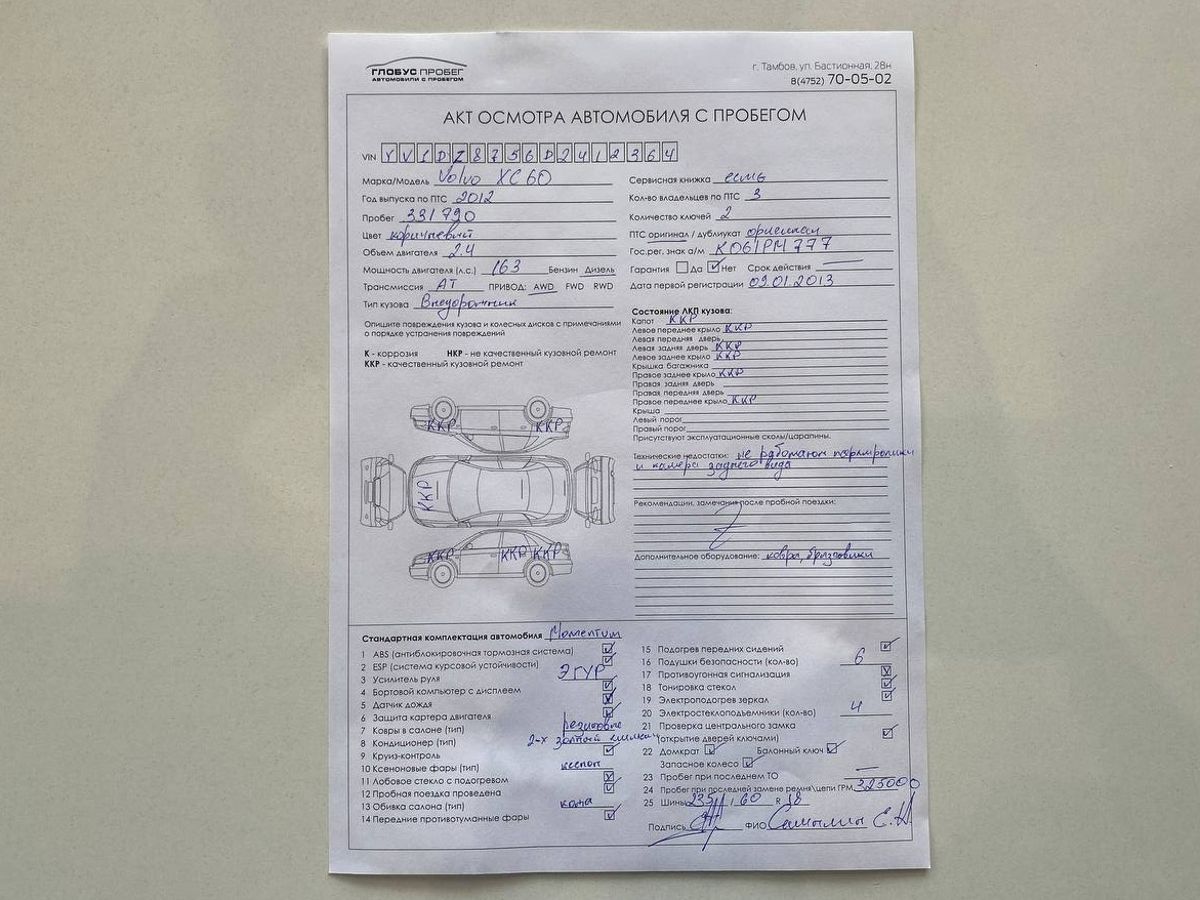 ГЛОБУС ПРОБЕГ
АВТОМОБИЛИ С ПРОБЕГОМ
г. Тамбов, ул. Бастионная, 28н
8(4752) 70-05-02
АКТ ОСМОТРА АВТОМОБИЛЯ С ПРОБЕГОМ
VIN YV1DZ8756D2412364
Марка/Модель Volvo XC60
Год выпуска по ПТС 2012
Пробег 331790
Цвет коричневый
Объем двигателя 2.4
Мощность двигателя (л.с.) 163 Бензин Дизель
Трансмиссия АТ ПРИВОД: AWD FWD RWD
Тип кузова Внедорожник
Опишите повреждения кузова и колесных дисков с примечаниями
о порядке устранения повреждений
К - коррозия НКР - не качественный кузовной ремонт
ККР - качественный кузовной ремонт
ККР ККР
ККР
ККР ККР ККР
Сервисная книжка есть
Кол-во владельцев по ПТС 3
Количество ключей 2
ПТС оригинал / дубликат оригинал
Гос.рег. знак а/м К061РМ777
Гарантия Да Нет Срок действия
Дата первой регистрации 09.01.2013
Состояние ЛКП кузова:
Капот ККР
Левое переднее крыло ККР
Левая передняя дверь
Левая задняя дверь ККР
Левое заднее крыло ККР
Крышка багажника
Правое заднее крыло ККР
Правая задняя дверь
Правая передняя дверь
Правое переднее крыло ККР
Крыша
Левый порог
Правый порог
Присутствуют эксплуатационные сколы/царапины.
Технические недостатки: не работают парктроники
и камера заднего вида
Рекомендации, замечания после пробной поездки:
Дополнительное оборудование: ковры, брызговики
Стандартная комплектация автомобиля Momentum
1 ABS (антиблокировочная тормозная система)
2 ESP (система курсовой устойчивости)
3 Усилитель руля ЭГУР
4 Бортовой компьютер с дисплеем
5 Датчик дождя
6 Защита картера двигателя
7 Ковры в салоне (тип) резиновые
8 Кондиционер (тип) 2-х зонный климат
9 Круиз-контроль
10 Ксеноновые фары (тип) ксенон
11 Лобовое стекло с подогревом
12 Пробная поездка проведена
13 Обивка салона (тип) кожа
14 Передние противотуманные фары
15 Подогрев передних сидений
16 Подушки безопасности (кол-во) 6
17 Противоугонная сигнализация
18 Тонировка стекол
19 Электроподогрев зеркал
20 Электростеклоподъемники (кол-во) 4
21 Проверка центрального замка
(открытие дверей ключами)
22 Домкрат Балонный ключ
Запасное колесо
23 Пробег при последнем ТО
24 Пробег при последней замене ремня\цепи ГРМ 325000
25 Шины 235 / 60 R 18
Подпись ФИО